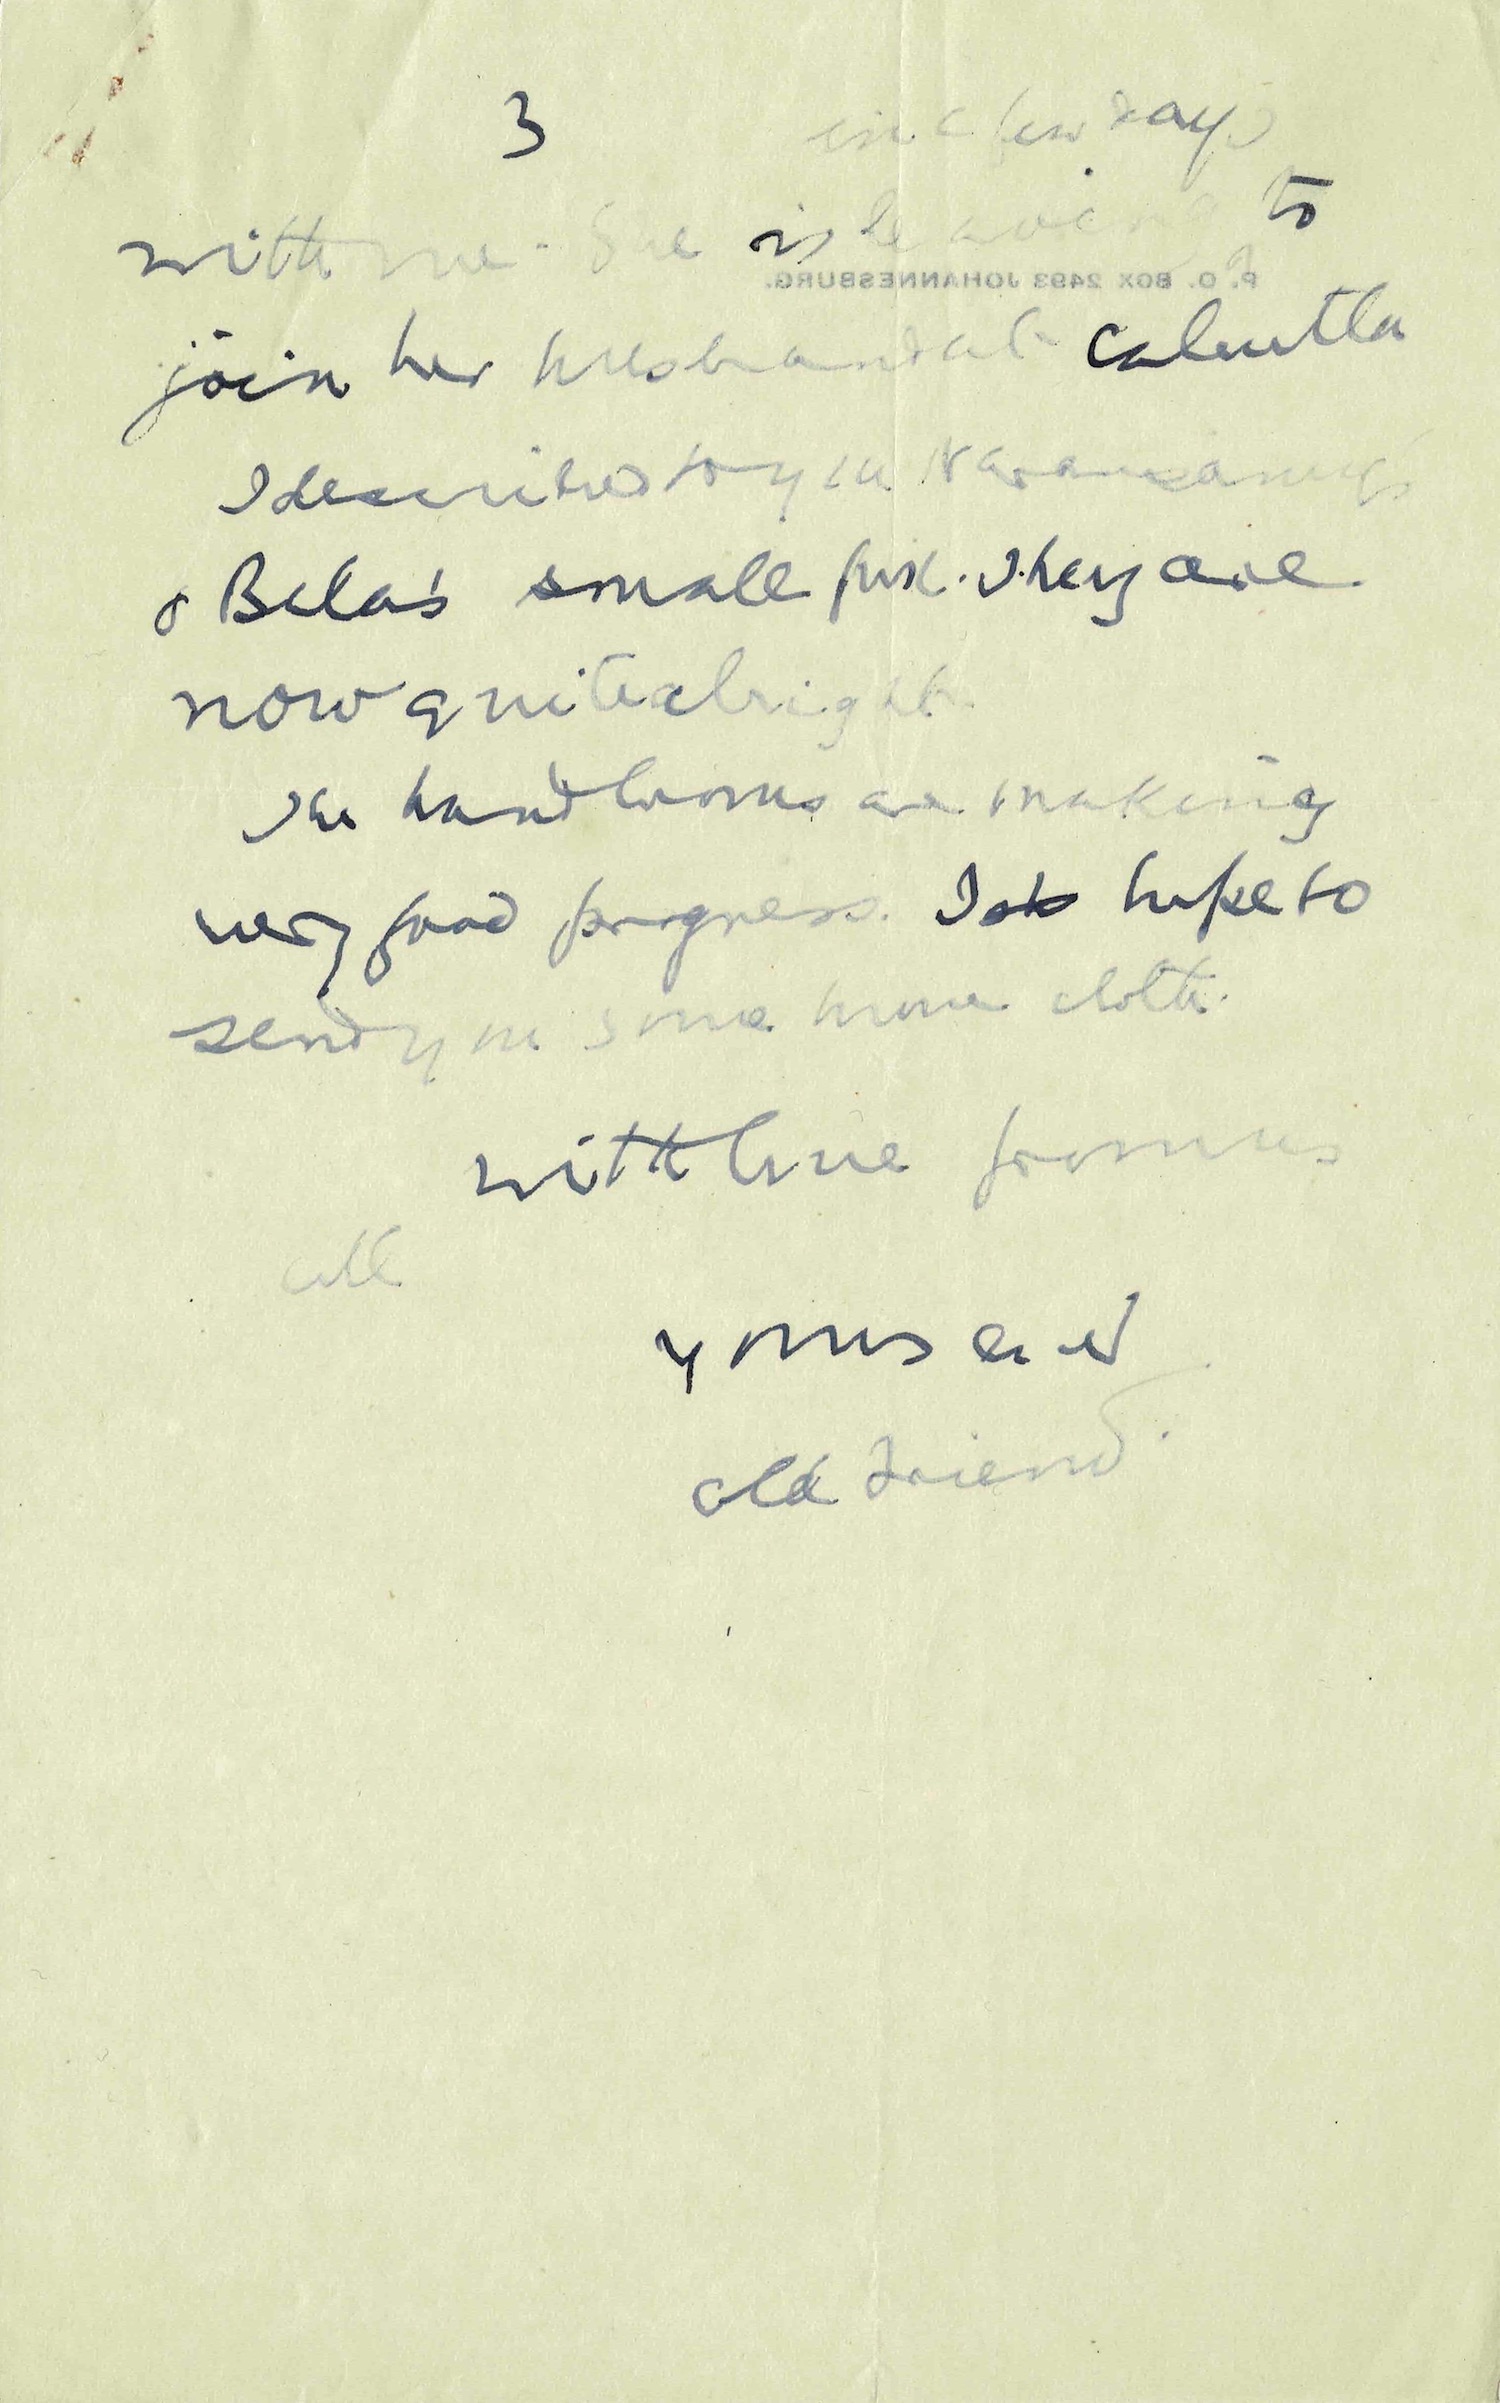 3
in a few days
with me. She is leaving to
P. O. BOX 2493 JOHANNESBURG.
join her husband at Calcutta
I described to you
& Bela's small pox. They are
now quite alright.
The handlooms are making
very good progress. I hope to
send you some more cloth.
with love from us
all
yours ever
old friend.